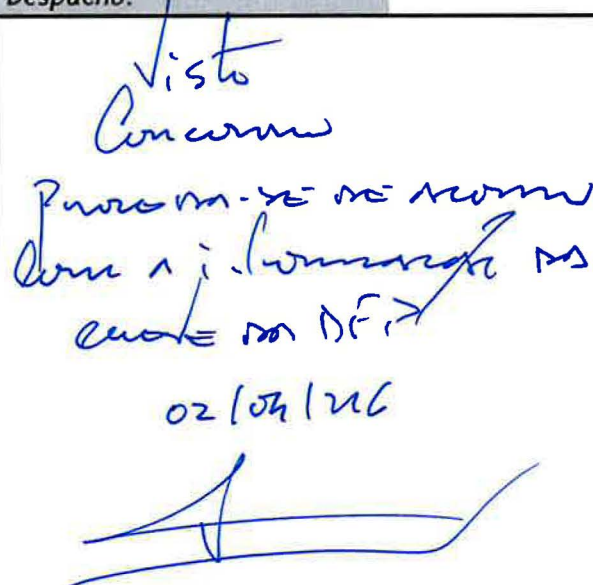 Despacho:
Visto
Concordo
Proceda-se de acordo
com a informação da
chefe da DF
02/04/216